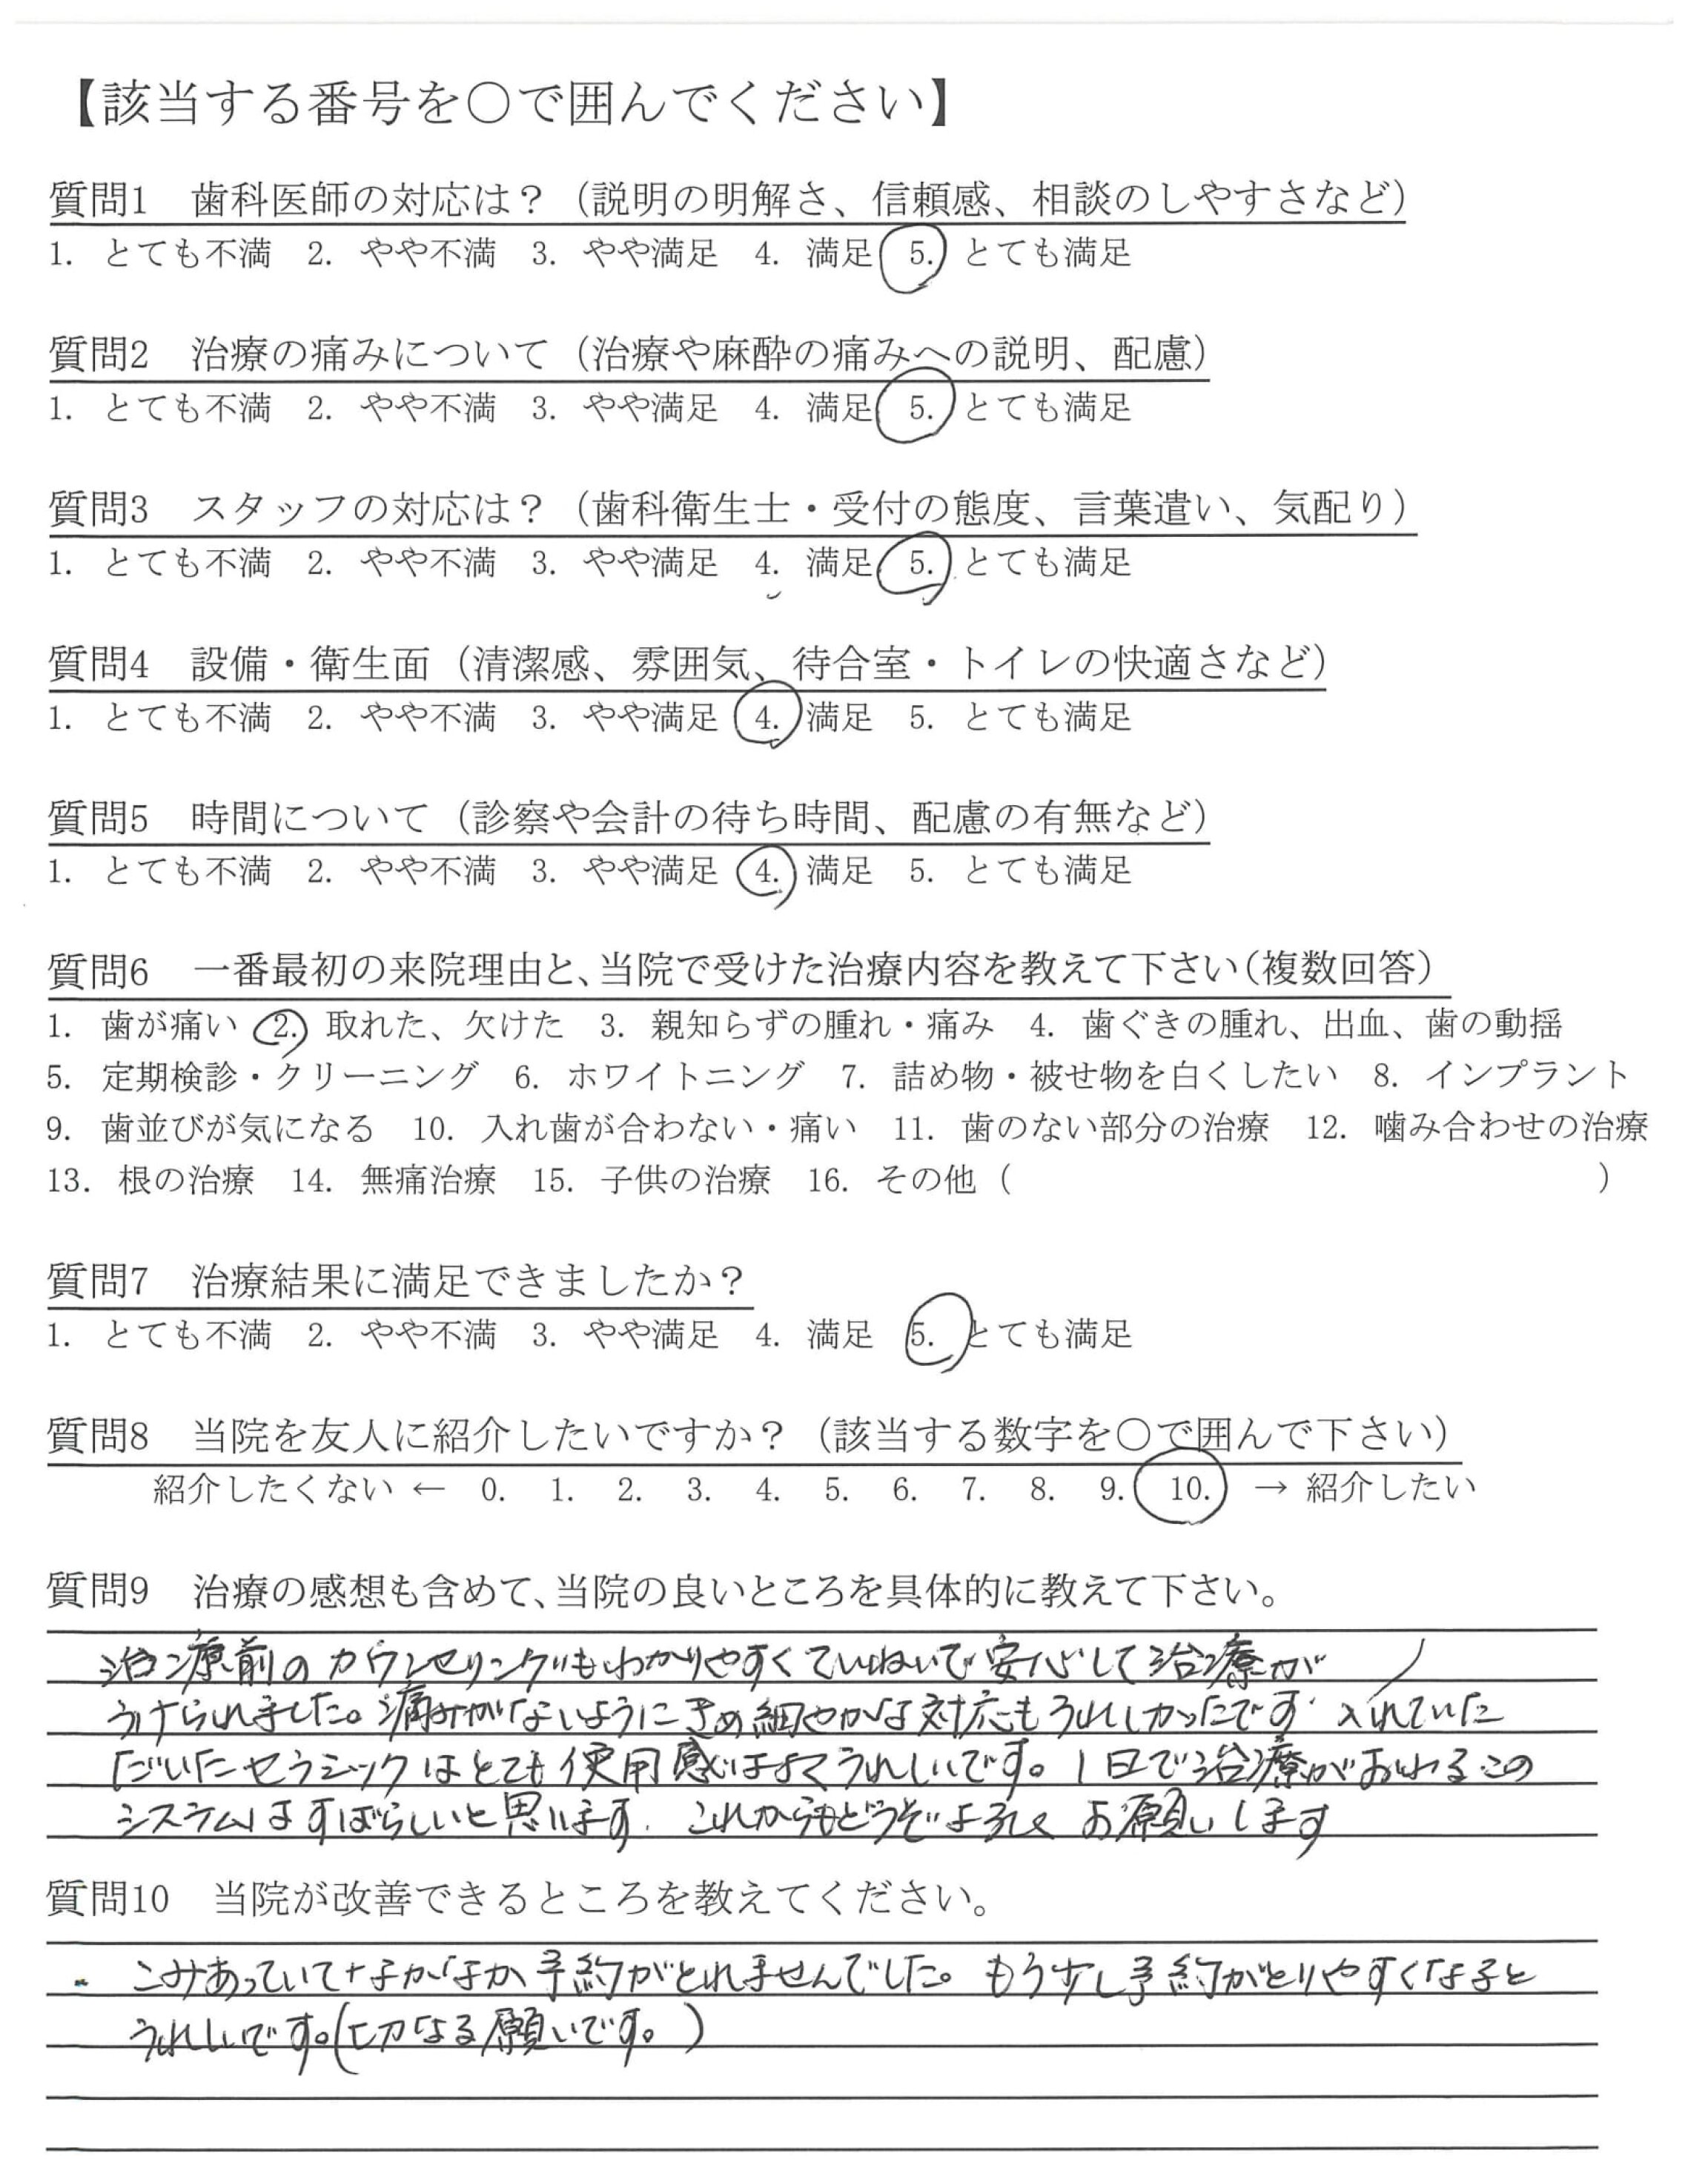 【該当する番号を○で囲んでください】
質問1　歯科医師の対応は？（説明の明解さ、信頼感、相談のしやすさなど）
1. とても不満　2. やや不満　3. やや満足　4. 満足　5. とても満足
質問2　治療の痛みについて（治療や麻酔の痛みへの説明、配慮）
1. とても不満　2. やや不満　3. やや満足　4. 満足　5. とても満足
質問3　スタッフの対応は？（歯科衛生士・受付の態度、言葉遣い、気配り）
1. とても不満　2. やや不満　3. やや満足　4. 満足　5. とても満足
質問4　設備・衛生面（清潔感、雰囲気、待合室・トイレの快適さなど）
1. とても不満　2. やや不満　3. やや満足　4. 満足　5. とても満足
質問5　時間について（診察や会計の待ち時間、配慮の有無など）
1. とても不満　2. やや不満　3. やや満足　4. 満足　5. とても満足
質問6　一番最初の来院理由と、当院で受けた治療内容を教えて下さい（複数回答）
1. 歯が痛い　2. 取れた、欠けた　3. 親知らずの腫れ・痛み　4. 歯ぐきの腫れ、出血、歯の動揺
5. 定期検診・クリーニング　6. ホワイトニング　7. 詰め物・被せ物を白くしたい　8. インプラント
9. 歯並びが気になる　10. 入れ歯が合わない・痛い　11. 歯のない部分の治療　12. 噛み合わせの治療
13. 根の治療　14. 無痛治療　15. 子供の治療　16. その他（　　　　　　　　　　）
質問7　治療結果に満足できましたか？
1. とても不満　2. やや不満　3. やや満足　4. 満足　5. とても満足
質問8　当院を友人に紹介したいですか？（該当する数字を○で囲んで下さい）
紹介したくない ← 0. 1. 2. 3. 4. 5. 6. 7. 8. 9. 10. → 紹介したい
質問9　治療の感想も含めて、当院の良いところを具体的に教えて下さい。
治療前のカウンセリングもわかりやすくていねいで安心して治療が
うけられました。痛みがないようにきめ細やかな対応もうれしかったです 入れていた
だいたセラミックはとても使用感はよくうれしいです。1日で治療がおわるこの
システムはすばらしいと思います. これからもどうぞよろしくお願いします
質問10　当院が改善できるところを教えてください。
こみあっていてなかなか予約がとれませんでした。もう少し予約がとりやすくなると
うれしいです。(切なる願いです。)